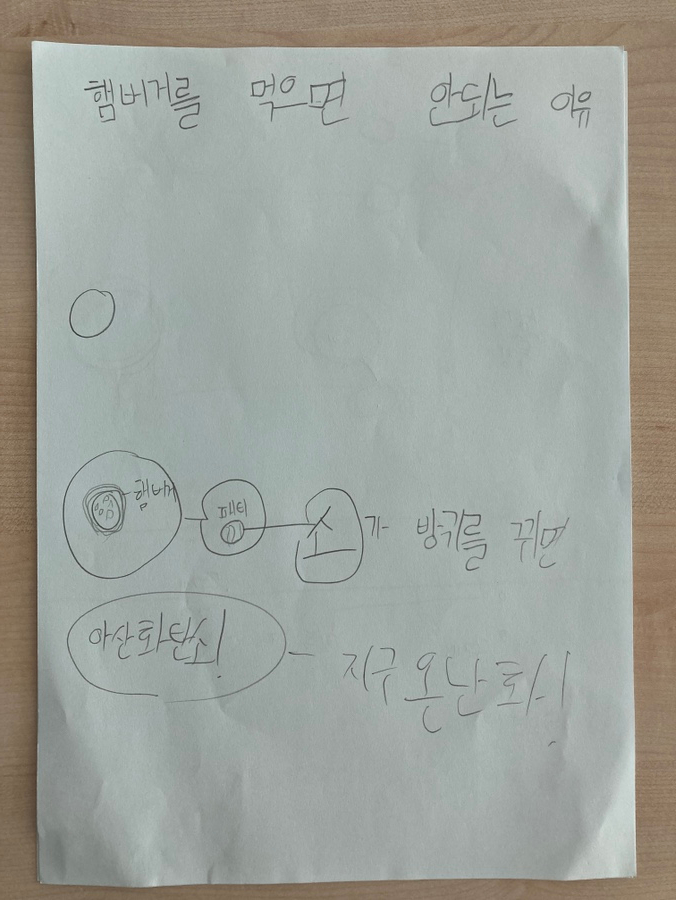 햄버거를 먹으면 안되는 이유
햄버거
패티
소가 방귀를 뀌면
아산화탄소! - 지구 온난화!